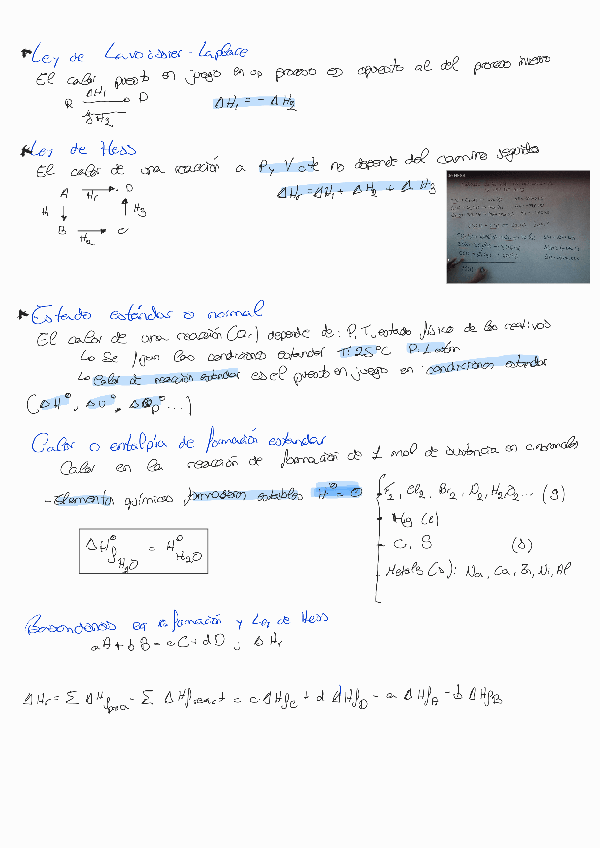 Ley de Lavoisier-Laplace
El calor puesto en juego en un proceso es opuesto al del proceso inverso
R ΔH₁ D
ΔH₂
ΔH₁ = - ΔH₂
Ley de Hess
El calor de una reacción a P y V cte no depende del camino seguido
A Hr D
H₁ H₃
B H₂ C
ΔHr = ΔH₁ + ΔH₂ + ΔH₃
Estado estándar o normal
El calor de una reacción (Qr) depende de: P, T, estado físico de los reactivos
Se fijan las condiciones estándar T: 25°C P: 1 atm
Calor de reacción estándar es el puesto en juego en condiciones estándar
(ΔH°, ΔU°, ΔQp°...)
Calor o entalpía de formación estándar
Calor en la reacción de formación de 1 mol de sustancia en
- Elementos químicos formadores estables H° = 0
F₂, Cl₂, Br₂, O₂, H₂ ... (g)
Hg (l)
C, S (s)
Metales (s): Na, Ca, Zn, Ni, Al
ΔH°f H₂O = H° H₂O
Basándonos en formación y Ley de Hess
aA + bB → cC + dD ; ΔHr
ΔHr = Σ ΔHf prod - Σ ΔHf react = c·ΔHfC + d ΔHfD - a ΔHfA - b ΔHfB